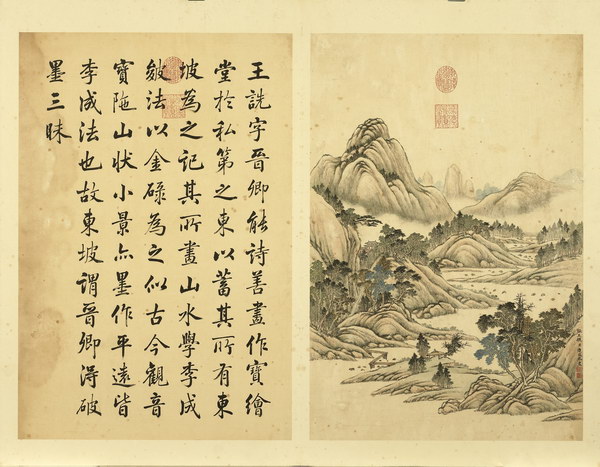 王詵字晉卿能詩善畫作寶繪
堂於私第之東以蓄其所有東
坡為之記其所畫山水學李成
皴法以金碌為之似古今觀音
寶陁山狀小景亦墨作平遠皆
李成法也故東坡謂晉卿得破
墨三昧